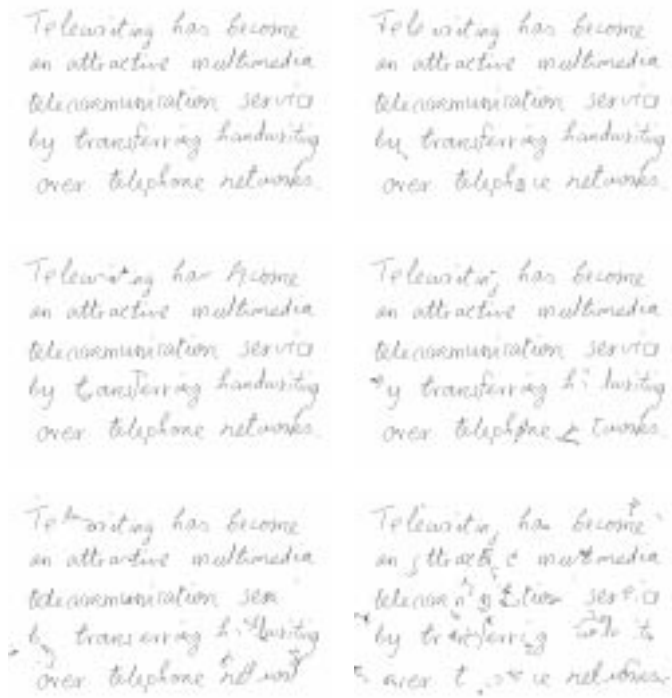 Telewriting has become
an attractive multimedia
telecommunication service
by transferring handwriting
over telephone networks.
has become
an attractive multimedia
telecommunication service
by transferring handwriting
over networks.
has
an attractive multimedia
telecommunication service
by transferring handwriting
over telephone networks.
Telewriting has become
an attractive multimedia
telecommunication service
transferring
over telephone
has become
an attractive multimedia
telecommunication
over telephone
Telewriting become
an multimedia
by
networks.